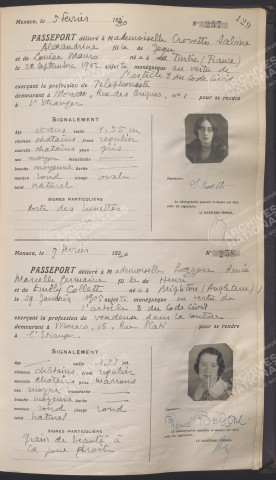 129
Monaco, le 5 Février 1930
N° 257
PASSEPORT délivré à Mademoiselle Crovetto Salone
Alexandrine fille de Jean
et de Louise Mauro née à La Turbie (France)
le 28 Septembre 1905 sujette monégasque en vertu de
l'article 8 du Code Civil
exerçant la profession de Téléphoniste
demeurant à Monaco, Rue des Briques, n° 1 pour se rendre
à l'Etranger
SIGNALEMENT
Age ans taille 1,55 m
cheveux chatains front regulier
sourcils chatains yeux gris
nez moyen moustache
bouche moyenne barbe
menton rond visage ovale
teint naturel
SIGNES PARTICULIERS
Porte des lunettes
Signature:
La photographie apposée ci-dessus est bien
celle du signataire.
LE SECRÉTAIRE GÉNÉRAL,
Monaco, le 7 février
N° 258
PASSEPORT délivré à Mademoiselle Renée
Marcelle Germaine fille de Henri
et de Emily Collett née à Brighton (Angleterre)
le 29 Janvier 1905 sujette monégasque en vertu de
l'article 8 du Code Civil
exerçant la profession de vendeuse dans la couture
demeurant à Monaco, 15, Rue Plati pour se rendre
à l'Etranger.
SIGNALEMENT
Age ans taille
cheveux châtains front regulier
sourcils chatains yeux marrons
nez moyen moustache
bouche moyenne barbe
menton rond visage rond
teint naturel
SIGNES PARTICULIERS
Grain de beauté à
la joue droite
Signature:
La photographie apposée ci-dessus est bien
celle du signataire.
LE SECRÉTAIRE GÉNÉRAL,